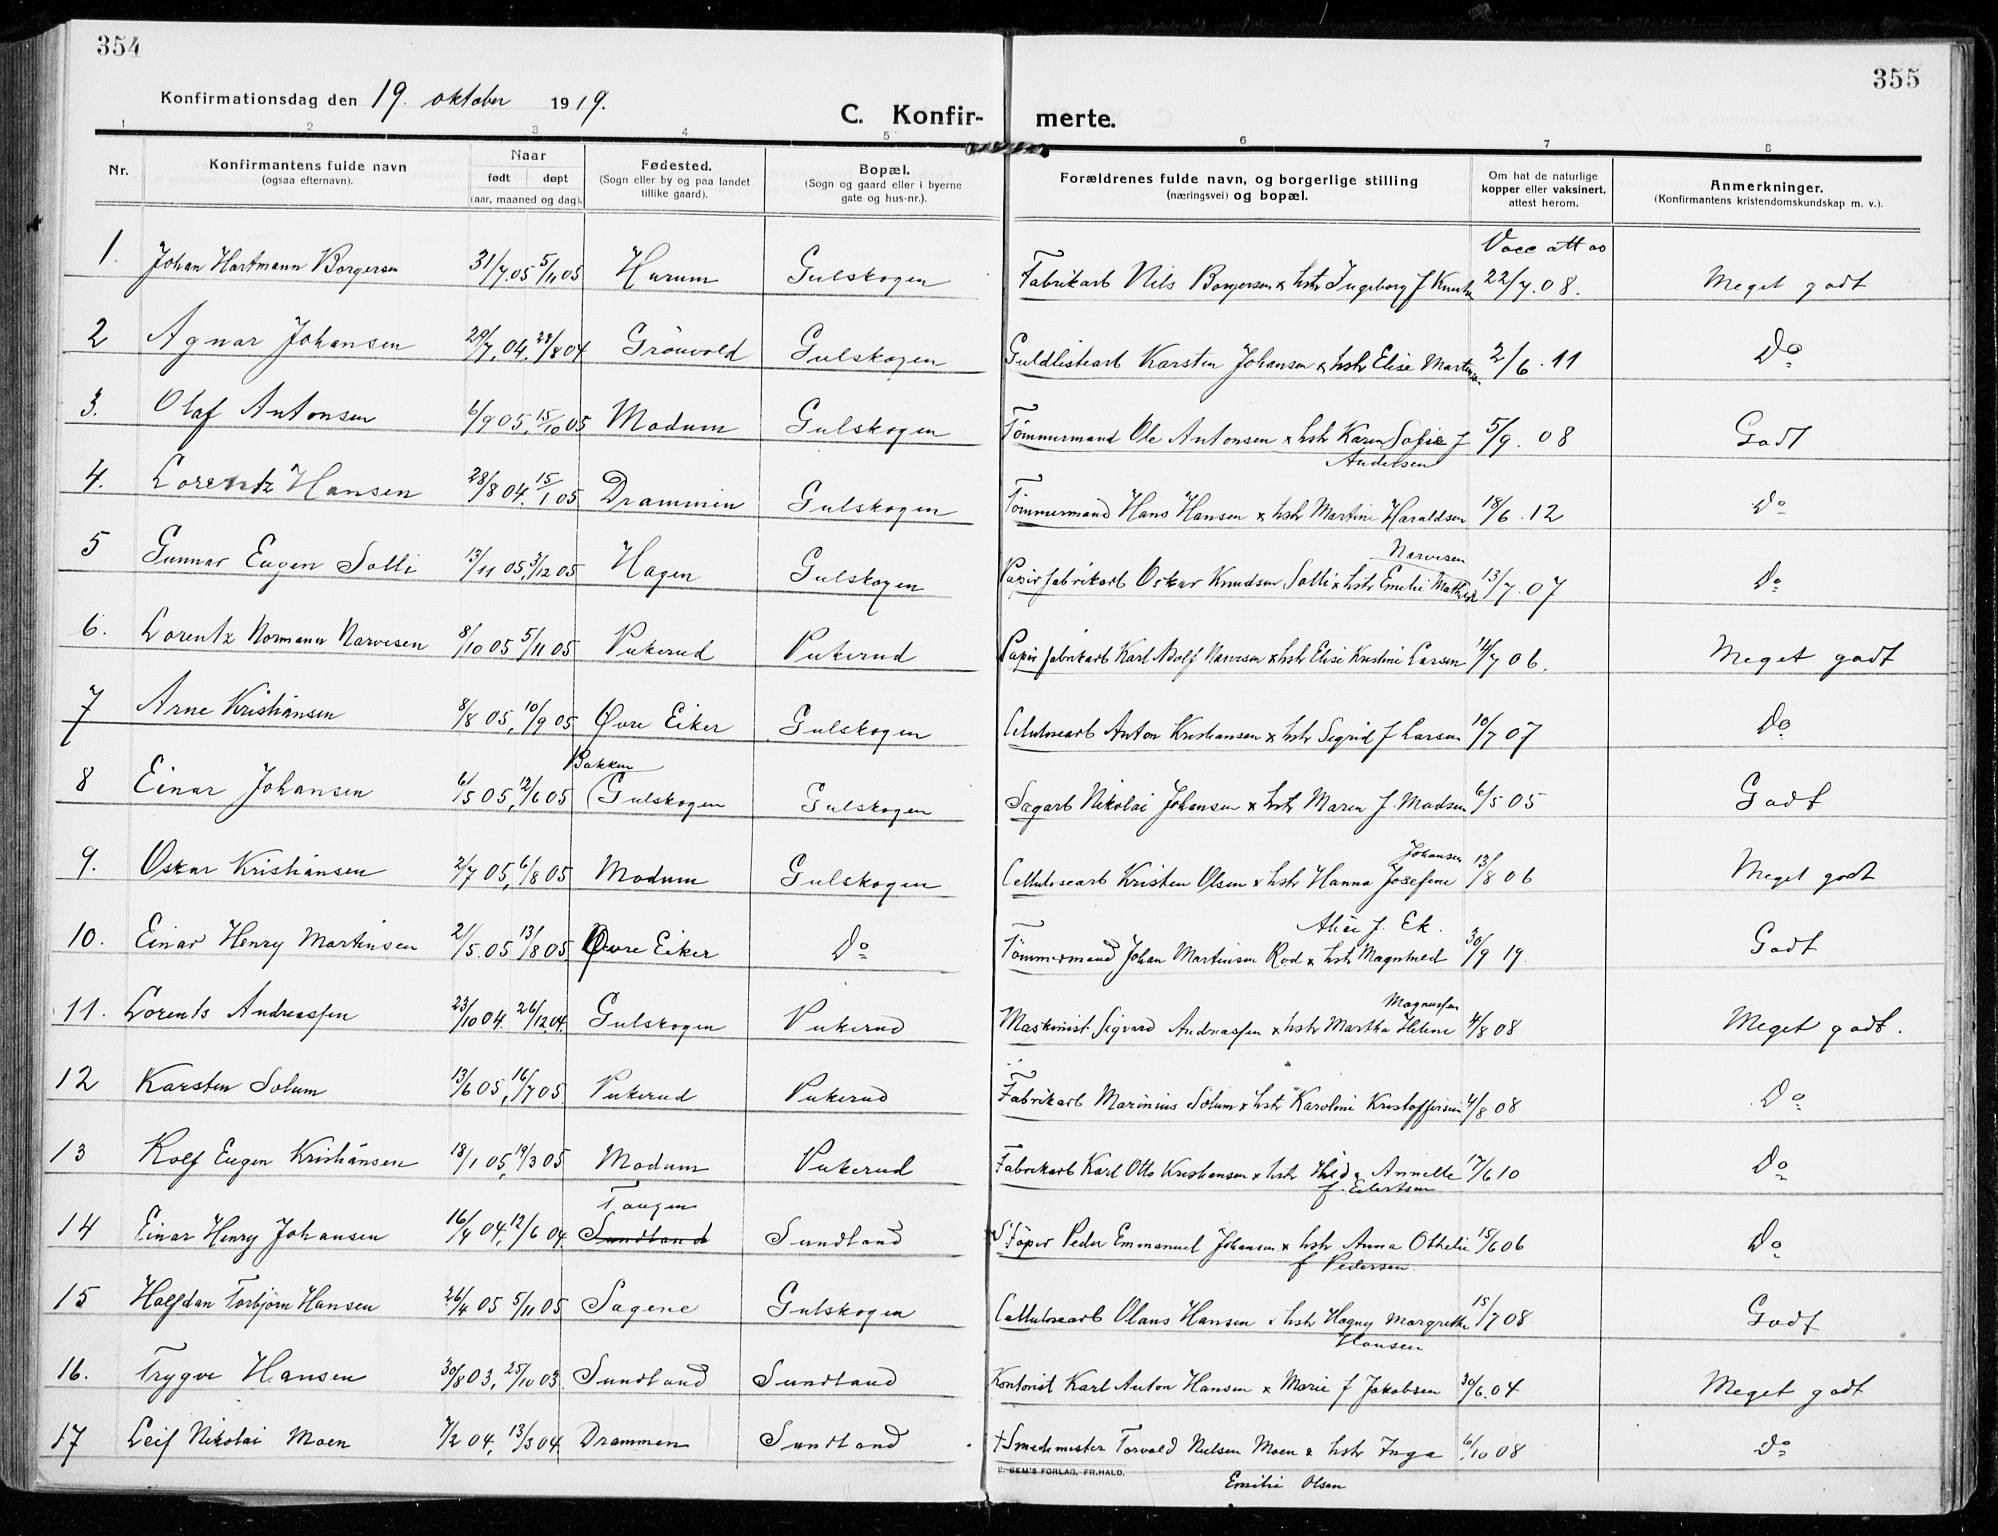 354
355
Konfirmationsdag den 19. oktober 1919.
C. Konfir- merte.
1 2 3 4 5 6 7 8
Nr. Konfirmantens fulde navn (ogsaa efternavn). Naar født døpt (aar, maaned og dag). Fødested. (Sogn eller by og paa landet tillike gaard). Bopæl. (Sogn og gaard eller i byerne gate og hus-nr.). Forældrenes fulde navn, og borgerlige stilling (næringsvei) og bopæl. Om hat de naturlige kopper eller vaksinert, attest herom. Anmerkninger. (Konfirmantens kristendomskundskap m. v.).
Vacc att av
1. Johan Hartmann Borgersen 31/7.05 5/11 05 Hurum Gulskogen Fabrikarb Nils Borgersen x hstr Ingeborg f Knutsen 22/7.08. Meget godt
2 Agnar Johansen 29/7.04. 28/8 04 Grönvold Gulskogen Guldlistearb Karsten Johansen x hstr Elise Martinsen 2/6.11 Do
3. Olaf Antonsen 6/9 05, 15/10 05 Modum Gulskogen Tömmermand Ole Antonsen x hstr Karen Sofie f 5/9.08 Godt
Andersen
4. Lorentz Hansen 28/8 04. 15/1 05 Drammen Gulskogen Tömmermand Hans Hansen x hstr Martine Haraldsen 18/6.12 Do
Narvesen
5 Gunnar Eugen Solli 13/11 05, 3/12 05 Hagen Gulskogen Papirfabrikarb Oskar Knudsen Solli x hstr Emilie Mathilde 13/7.07 Do
6. Lorentz Normann Narvesen 8/10 05 5/11 05 Pukerud Pukerud Papirfabrikarb Karl Adolf Narvesen x hstr Elise Kristine Larsen 11/7 06. Meget godt
7 Arne Kristiansen 8/8 05, 10/9 05 Øvre Eiker Gulskogen Cellulosearb Anton Kristiansen x hstr Sigrid f Larsen 10/7 07 Do
Bakken
8 Einar Johansen 6/5 05, 12/6 05 (Gulskogen Gulskogen Sagarb Nikolai Johansen x hstr Maren f. Madsen 6/5 05 Godt
Johansen
9. Oskar Kristiansen 2/7 05, 6/8 05 Modum Gulskogen Cellulosearb Kristen Olsen x hstr Hanna Josefine 13/8 06 Meget godt
Alice f. Ek.
10. Einar Henry Martinsen 21/5.05 13/8 05. Øvre Eiker Do Tömmermand Johan Martinsen Rod x hstr 30/9 19. Godt
Magnussen
11. Lorents Andreassen 23/10 04. 26/12.04. Gulskogen Pukerud Maskinist Sigvard Andreassen x hstr Martha Helene 4/8 08 Meget godt.
12 Karsten Solum 13/6 05, 16/7 05. Pukerud Pukerud Fabrikarb Marinius Solum x hstr Karoline Kristoffersen 4/8 08 Do
13 Rolf Eugen Kristiansen 18/1 05, 19/3 05 Modum Pukerud Fabrikarb Karl Otto Kristiansen x hstr Hilda Annette 17/6 10 Do
f. Eilertsen
Tangen
14 Einar Henry Johansen 16/4 04, 12/6 04. Sundland Sundland Støper Peder Emmanuel Johansen x hstr Anna Othelie 15/6 06 Do
f Pedersen.
15 Halfdan Torbjørn Hansen 26/4 05 5/11 05 Sagene Gulskogen Cellulosearb Olaus Hansen x hstr Hagny Margrethe 15/7 08 Godt
Hansen
16. Trygve Hansen 30/8 03, 25/10 03. Sundland Sundland Kontorist Karl Anton Hansen x Marie f Jakobsen 30/6.04 Meget godt
17 Leif Nikolai Moen 7/2 04, 13/3 04. Drammen Sundland †Smedmester Torvald Nielsen Moen x hstr Inga 6/10 08 Do
E. SEM'S FORLAG, FR.HALD.
Emilie Olsen